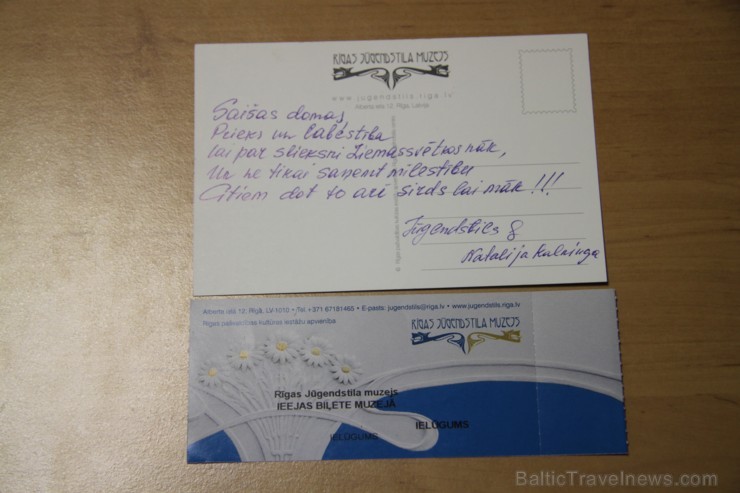 RĪGAS JŪGENDSTILA MUZEJS
www.jugendstils.riga.lv
Alberta iela 12, Rīga, Latvija
Gaišas domas,
Prieks un labestība
lai par slieksni Ziemassvētkos nāk,
Un ne tikai saņemt mīlestību
Citiem dot to arī sirds lai māk!!!
Jūgendstils &
Natalija
Alberta ielā 12, Rīgā, LV-1010 • Tel. +371 67181465 • E-pasts: jugendstils@riga.lv • www.jugendstils.riga.lv
Rīgas pašvaldības kultūras iestāžu apvienība
RĪGAS JŪGENDSTILA MUZEJS
Rīgas Jūgendstila muzejs
IEEJAS BIĻETE MUZEJĀ
IELŪGUMS
IELŪGUMS
BalticTravelnews.com